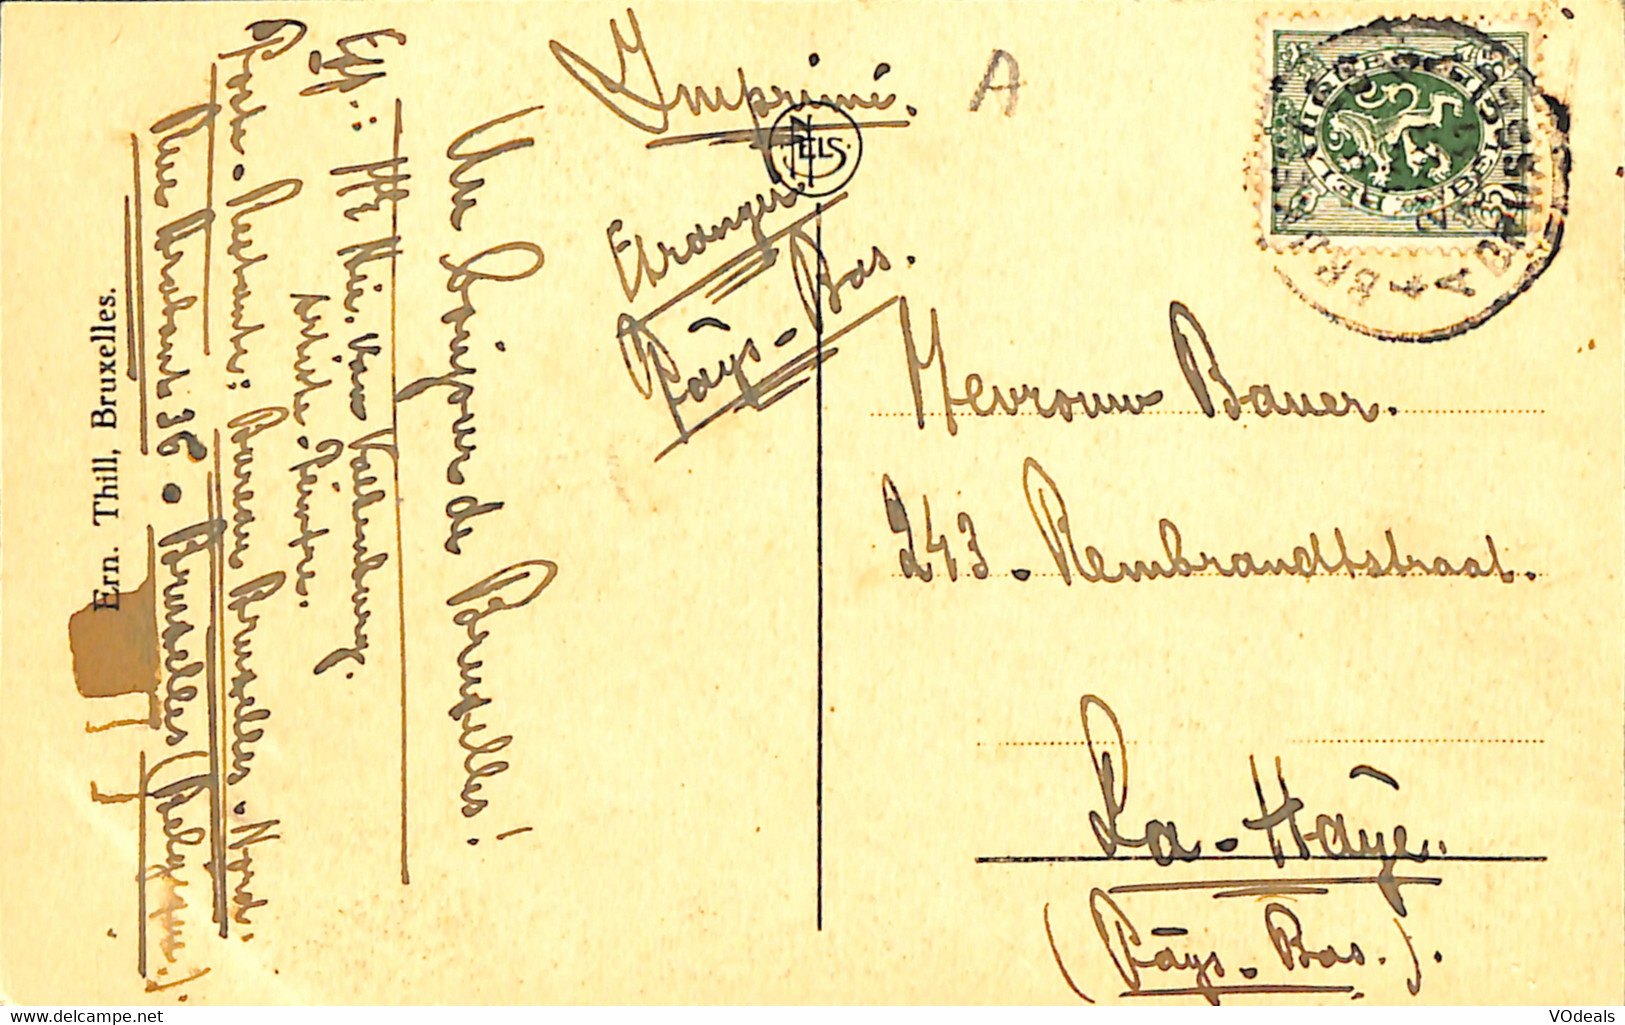 Imprimé.
A
NELS
Etranger
Pays-Bas.
BELGIQUE
BELGIË
Mevrouw Bauer.
243 - Rembrandtstraat.
La-Haye.
(Pays-Bas.).
Un bonjour de Bruxelles!
Exp.: Mr Nic. van Valkenburg.
Artiste-Peintre.
Poste-Restante: Bureau Bruxelles-Nord.
Rue Brabant 36 • Bruxelles (Belgique.).
Ern. Thill, Bruxelles.
VOdeals